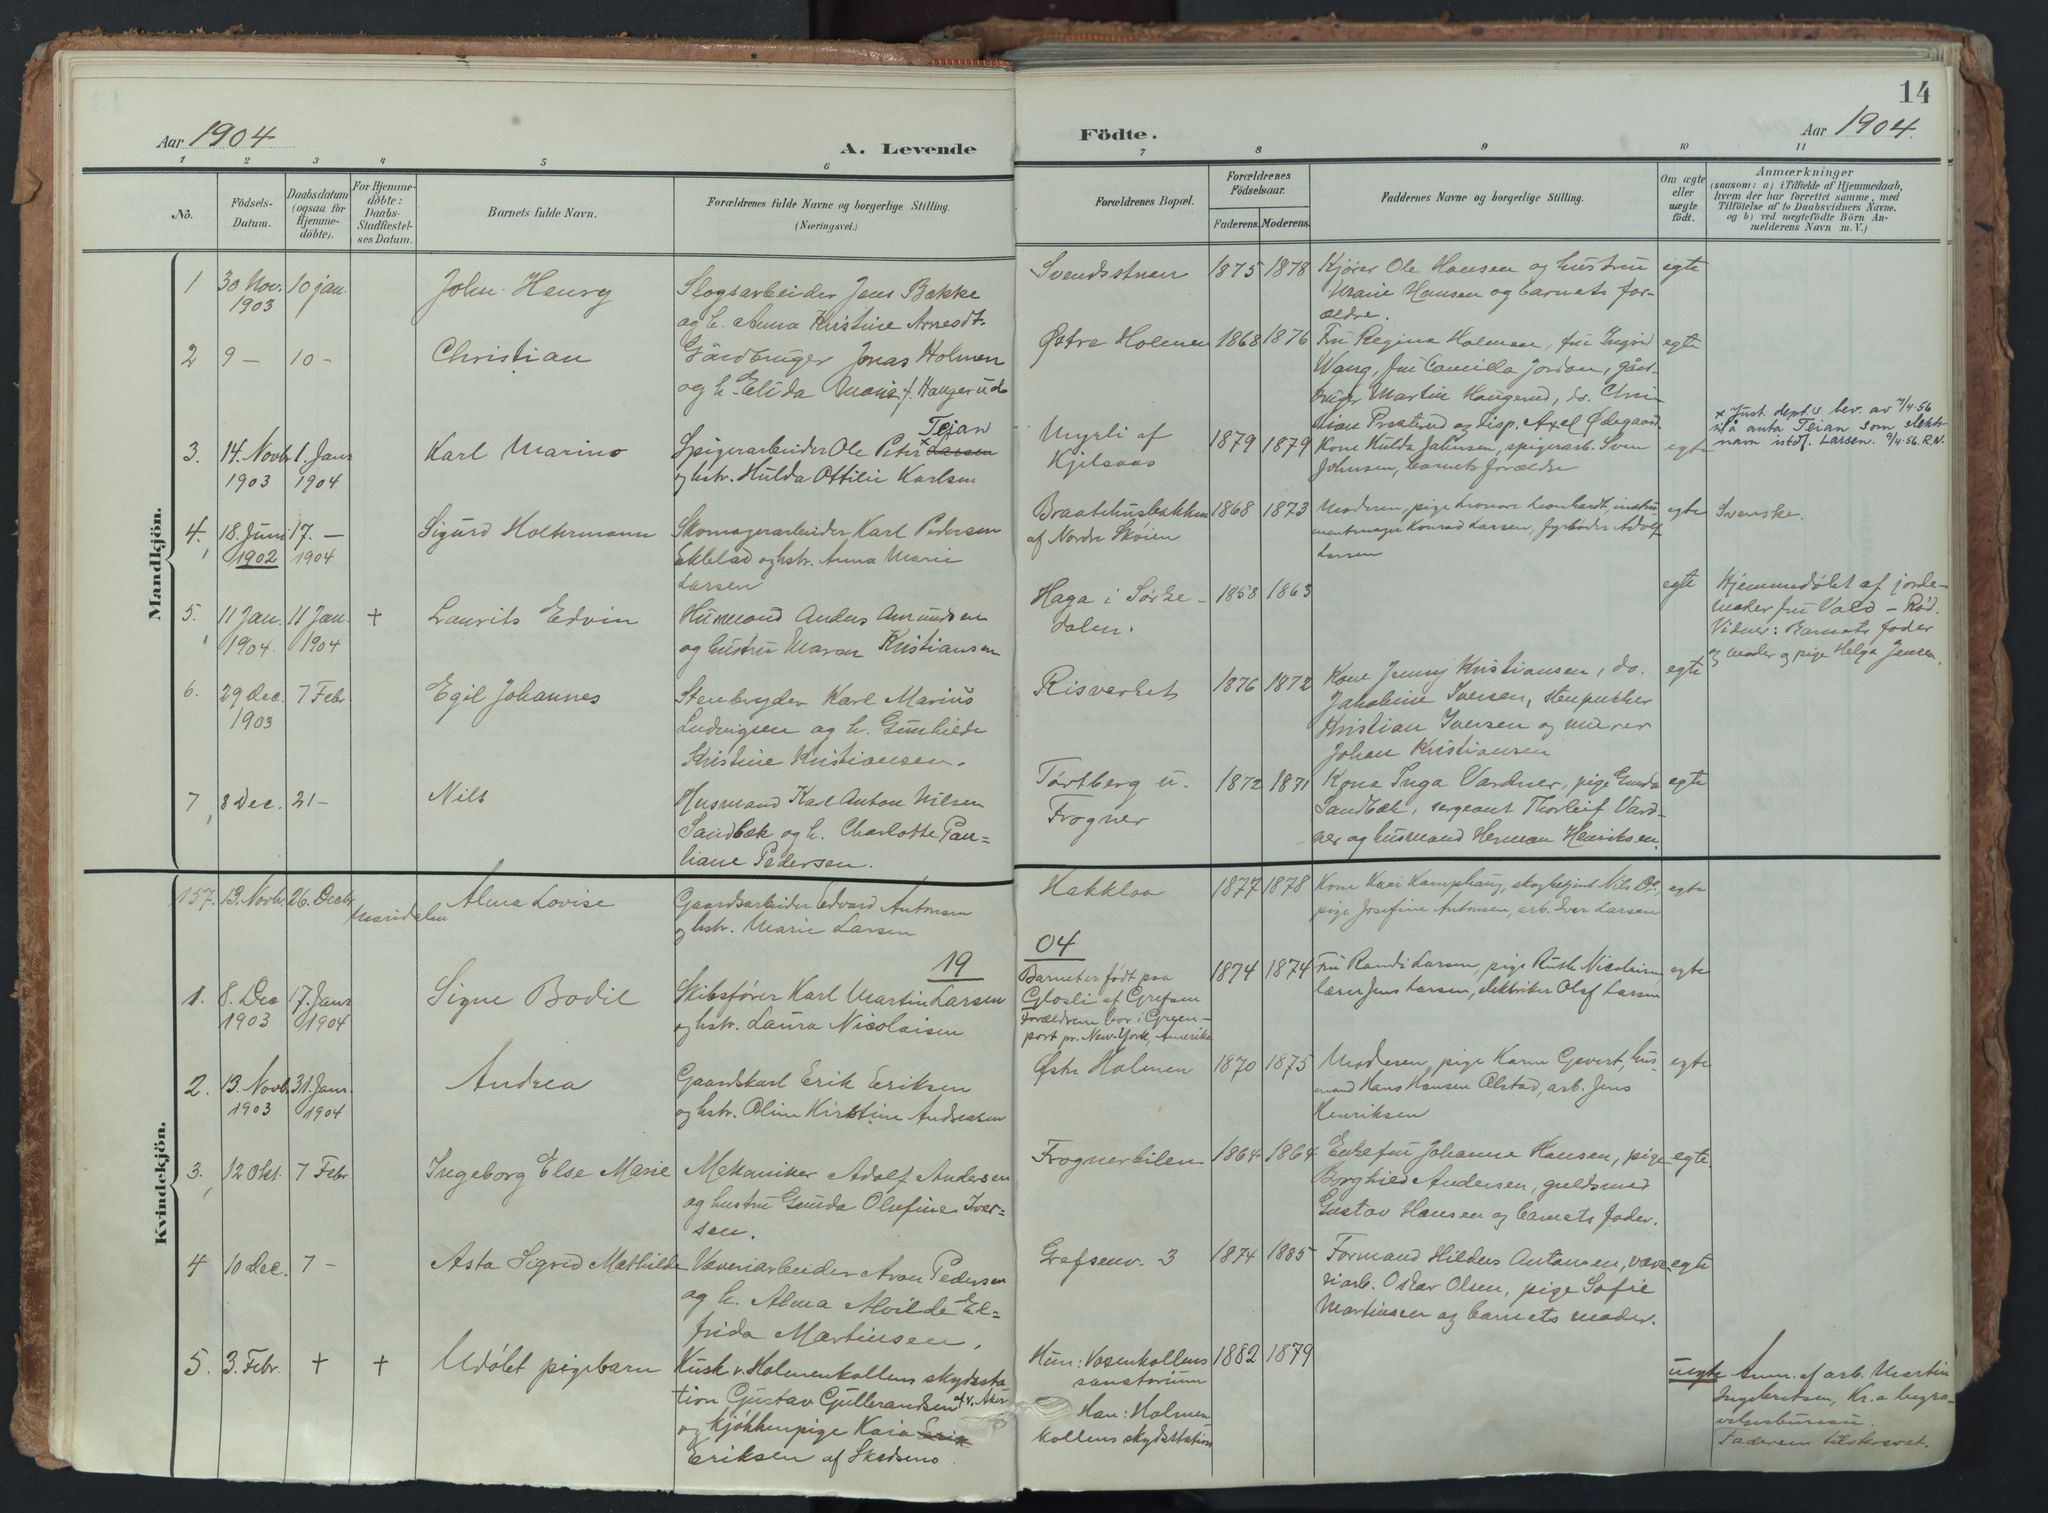 14
Aar 1904
A. Levende
Födte.
Aar 1904.
1 2 3 4 5 6
7 8 9 10 11
No.
Födsels-
Datum.
Daabsdatum
(ogsaa for
Hjemme-
döbte).
For Hjemme-
döbte:
Daabs-
Stadfæstel-
ses Datum.
Barnets fulde Navn.
Forældrenes fulde Navne og borgerlige Stilling.
(Næringsvei.)
Forældrenes Bopæl.
Forældrenes
Födselsaar.
Faderens. Moderens.
Faddernes Navne og borgerlige Stilling.
Om ægte
eller
uægte
födt.
Anmærkninger
(saasom: a) i Tilfælde af Hjemmedaab,
hvem der har forrettet samme, med
Tilföielse af to Daabsvidners Navne,
og b) ved uægtefödte Börn An-
melderens Navn m. V.)
Mandkjön.
1 30 Nov. 1903 10 jan. John Henry
Slogsarbeider Jens Bække
og h. Anna Kristine Arnesdt.
1875 1878 Kjører Ole Hansen og hustru egte
Marie Hansen og barnets for-
ældre.
2 9 – 10 – Christian
Gårdbruger Jonas Holmen
og h. Elida Marie f. Haugerud
Østre Holmen 1868 1876 Fru Regina Holmen, fru Ingrid egte
Wang, fru Camilla Jordan, gård-
bruger Martin Haugerud, do. Chris-
tian Præsterud og disp. Axel Ødegaard
3. 14. Novb. 1903 1. Janr 1904 Karl Marino
Tejan
Spigerarbeider Ole Peter × Larsen
og hstr. Hulda Ottilie Karlsen
Myrli af
Kjelsaas
1879 1879 Kone Hulda Johnsen, spigerarb. Sven egte
Johnsen, barnets forældre
× Just. dept.s bev. av 7/4-56
til å anta Teian som slekts-
navn istdf. Larsen. 9/4-56. R.N.
4. 18. Juni 1902 17. – 1904 Sigurd Holtermann
Skomagerarbeider Karl Pedersen
Ekblad og hstr. Anna Marie
Larsen
Braatehusbakken
af Nordre Skøien
1868 1873 Moderen, pige Leonore Leonhardt, instru- egte Svenske.
mentmager Konrad Larsen, fyrbøder Adolf
Larsen
5. 11 Jan. 1904. 11 Jan. 1904 + Laurits Edvin
Husmand Anders Amundsen
og hustru Maren Kristiansen
Haga i Sørke-
dalen.
1858 1863 egte
Hjemmedøbt af jorde-
moder fru Vald – Rød.
Vidner: Barnets fader
og moder og pige Helga Jensen.
6. 29 dec. 1903 7 Febr. Egil Johannes
Stenbryder Karl Marius
Ludvigsen og h. Gunhilde
Kristine Kristiansen.
Risverket 1876 1872 Kone Jenny Kristiansen, do. egte
Jakobine Iversen, stenpukker
Kristian Iversen og murer
Johan Kristiansen
7, 8 Dec. 21 – Nils
Husmand Karl Anton Nilsen
Sandbæk og h. Charlotte Pau-
liane Pedersen.
Tørtberg u.
Frogner
1872 1871 Kone Inga Vardner, pige Gunda egte
Sandbæk, sergeant Thorleif Vard-
ner og husmand Herman Henriksen.
Kvindekjön.
157. 13. Novb. 26. Decbr. Maridalen Alma Lovise
Gaardsarbeider Edvard Antonsen
og hstr. Marie Larsen
Hakkloa 1877 1878 Kone Kari Kamphaug, skogbetjent Nils Do., egte
pige Josefine Antonsen, arb. Iver Larsen
19
04
1. 8. Dec 1903 17. Janr 1904 Signe Bodil
Skibsfører Karl Martin Larsen
og hstr. Laura Nicolaisen
Barnet er født paa
Glosli af Grefsen
Forældrene bor i Green-
port pr. New-York, Amerika
1874 1874 Fru Randi Larsen, pige Ruth Nicolaisen, egte
lærer Jens Larsen, elektriker Olaf Larsen
2. 13. Novb. 1903 31. Janr. 1904 Andrea
Gaardskarl Erik Eriksen
og hstr. Oline Kirstine Andreasen
Østre Holmen 1870 1875 Moderen, pige Karen Gevert, hus- egte
mand Hans Hansen Olstad, arb. Jens
Henriksen
3, 12 Okt. 7 Febr Ingeborg Else Marie
Mekaniker Adolf Andersen
og hustru Gunda Olefine Iver-
sen.
Frognerkilen 1864 1864 Enkefru Johanne Hansen, pige egte.
Borghild Andersen, guldsmed
Gustav Hansen og barnets fader.
4 10 Dec. 7 – Asta Sigrid Mathilde
Væveriarbeider Aron Pedersen
og h. Alma Alvilde El-
frida Martinsen.
Grefsenv. 3 1874 1885 Formand Hilders Antonsen, væve- egte
riarb. Oskar Olsen, pige Sofie
Martinsen og barnets moder.
5. 3. Febr. + + Udøbt pigebarn
Kusk v. Holmenkollens skydssta
tion Gustav Gulbrandsen af v. Aker
og kjøkkenpige Kaia Erik
Eriksen af Skedsmo.
Hun: Vosenkollens
sanatorium
Han: Holmen-
kollens skydsstation
1882 1879 uegte
Anm. af arb. Martin
Ingebretsen, Kr.a begra-
velsesbureau.
Faderen tilskrevet.